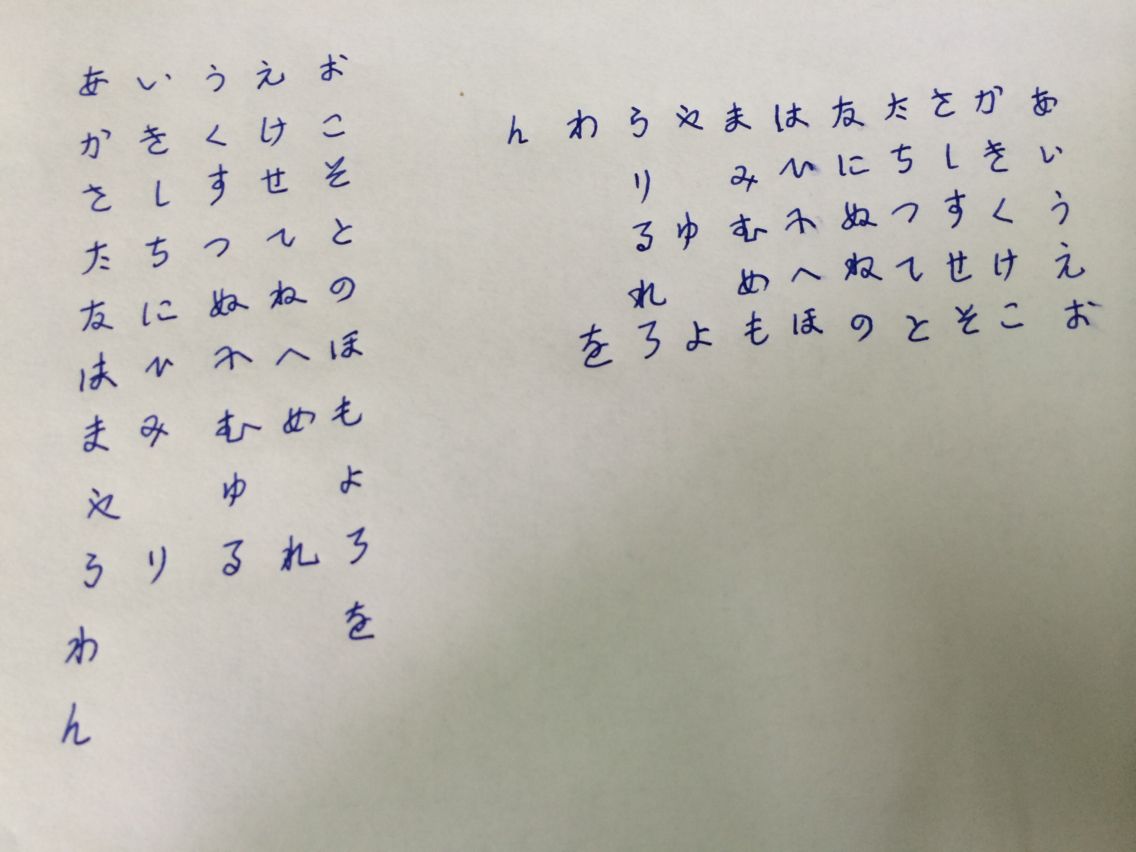 あ い う え お
か き く け こ
さ し す せ そ
た ち つ て と
な に ぬ ね の
は ひ ふ へ ほ
ま み む め も
や ゆ よ
ら り る れ ろ
わ を
ん
あ い う え お
か き く け こ
さ し す せ そ
た ち つ て と
な に ぬ ね の
は ひ ふ へ ほ
ま み む め も
や ゆ よ
ら り る れ ろ
わ を
ん